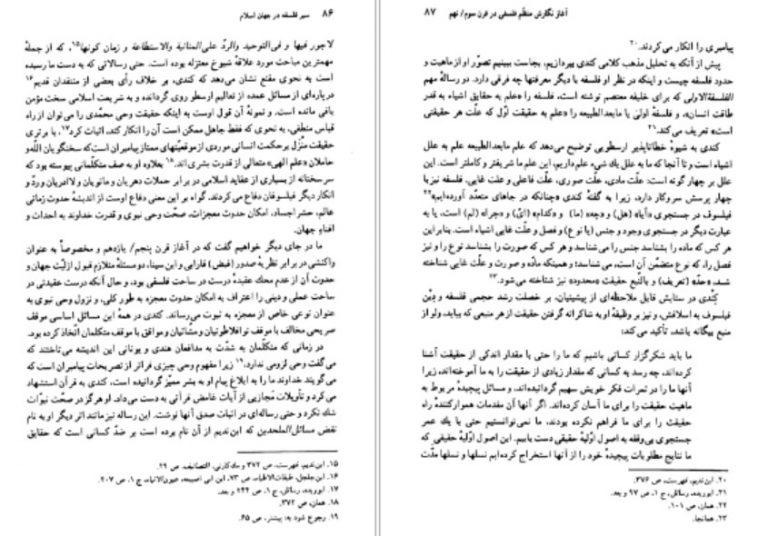 ۸۶ سیر فلسفه در جهان اسلام
لاجور فیها و فی‌التوحید والردّ علی‌المنانیة والاستطاعة و زمان کونها۱۵، که از جملهٔ
مهمترین مباحث مورد علاقهٔ شیوخ معتزله بوده است. حتی رسالاتی که به دست ما رسیده
است به نحوی مقنع نشان می‌دهد که کندی، بر خلاف رأی بعضی از منتقدان قدیم۱۶
درپاره‌ای از مسائل عمده از تعالیم ارسطو روی گردانده و به شریعت اسلامی سخت مؤمن
باقی مانده است. و نمونهٔ آن قول اوست به اینکه حقیقت وحی محمّدی را می‌توان از راه
قیاس منطقی، به نحوی که فقط جاهل ممکن است آن را انکار کند، اثبات کرد۱۷. با برتری
حقیقت منزل بر حکمت انسانی موردی ازموقعیتهای ممتاز پیامبران است که سخنگویان الله‌و
حاملان «علم الهی» متعالی از قدرت بشری‌اند.۱۸ بعلاوه او به صف متکلّمانی پیوسته بود که
سرسختانه از بسیاری از عقاید اسلامی در برابر حملات دهریان و مانویان ولاادریان وردّ و
انکار دیگر فیلسوفان دفاع می‌کردند. گواه بر این معنی دفاع اوست از اندیشهٔ حدوث زمانی
عالم، حشر اجساد، امکان حدوث معجزات، صحّت وحی نبوی و قدرت خداوند به احداث و
افناء جهان.
ما در جای دیگر خواهیم گفت که در آغاز قرن پنجم/ یازدهم و مخصوصاً به عنوان
واکنشی در برابر نظریهٔ صدور (فیض) فارابی و ابن سینا، دومسئلهٔ متلازم قبول ازلیّت جهان و
حدوث آن از عدم محک عقیدهٔ درست در ساحت فلسفی بود، و حال آنکه درست عقیدتی در
ساحت عملی و دینی را اعتراف به امکان حدوث معجزه به طور کلی، و نزول وحی نبوی به
عنوان نوعی خاص از معجزه به ثبوت می‌رساند. کندی در همهٔ این مسائل اساسی موقف
صریحی مخالف با موقف نوافلاطونیان ومشائیان وموافق با موقف متکلمان اتّخاذ کرده بود.
در زمانی که متکلّمان به شدّت به مدافعان هندی و یونانی این اندیشه می‌تاختند که
می‌گفت وحی لزومی ندارد،۱۹ زیرا مفهوم وحی چیزی فراتر از تصریحات پیامبران است که
می‌گویند خداوند ما را به ابلاغ پیام او به بشر ممیّز گردانیده است، کندی به قرآن استشهاد
می‌کرد و تأویلات مجازیی از آیات غامض قرآنی به دست می‌داد. او هرگز در صحّت نبوّات
شک نکرد و حتی رساله‌ای در اثبات صدق آنها نوشت. این رساله نیزمانند اثر دیگر او به نام
نقض مسائل‌الملحدین که ابن‌ندیم از آن نام برده است بر ضدّ کسانی است که حقایق
۱۵. ابن‌ندیم، فهرست، ص ۳۷۲ و مک‌کارتی، التصانیف، ص ۲۹.
۱۶. ابن‌جلجل، طبقات‌الاطباء، ص ۷۳، ابن ابی اصیبعه، عیون‌الانباء، ج ۱، ص ۲۰۷.
۱۷. ابوریده، رسائل، ج ۱، ص ۲۴۴ و بعد.
۱۸. همان، ص ۳۷۲.
۱۹. رجوع شود به: پیشتر، ص ۶۵.
آغاز نگارش منظّم فلسفی در قرن سوم/ نهم ۸۷
پیامبری را انکار می‌کردند.۲۰
پیش از آنکه به تحلیل مذهب کلامی کندی بپردازیم، بجاست ببینیم تصوّر او ازماهیت و
حدود فلسفه چیست و اینکه در نظر او فلسفه با دیگر معرفتها چه فرقی دارد. در رسالهٔ مهم
الفلسفةالاولی که برای خلیفه معتصم نوشته است، فلسفه را «علم به حقایق اشیاء به قدر
طاقت انسان»، و فلسفهٔ اولیٰ یا مابعدالطبیعه را «علم به حقیقت اوّل که علّت هر حقیقتی
است» تعریف می‌کند.۲۱
کندی به شیوهٔ خطاناپذیر ارسطویی توضیح می‌دهد که علم مابعدالطبیعه علم به علل
اشیاء است و تا آنجا که ما به علل یك شیء علم داریم، این علم ما شریفتر و کاملتر است. این
علل بر چهار گونه است: علّت مادی، علّت صوری، علّت فاعلی و علّت غایی. فلسفه نیز با
چهار پرسش سروکار دارد، زیرا به گفتهٔ کندی «چنانکه در جاهای متعدّد آورده‌ایم»۲۲
فیلسوف در جستجوی «آیا» (هل) و «چه» (ما) و «کدام» (أیّ) و «چرا» (لم) است، یا به
عبارت دیگر در جستجوی وجود و جنس (یا نوع) و فصل و علّت غایی اشیاء است. بنابراین
هر کس که ماده را بشناسد جنس را می‌شناسد و هر کس که صورت را بشناسد نوع را و نیز
فصل را، که نوع متضمّن آن است، می‌شناسد؛ و همینکه مادّه و صورت و علّت غایی شناخته
شد، «حدّ» (تعریف) و بالتّبع حقیقت «محدود» نیز شناخته می‌شود.۲۳
کِندی در ستایش قابل ملاحظه‌ای از پیشینیان، بر خصلت رشد حجمی فلسفه و دِیْن
فیلسوف به اسلافش، و نیز بر وظیفهٔ او به شاکرانه گرفتن حقیقت از هر منبعی که بیابد، ولو از
منبع بیگانه باشد، تأکید می‌کند:
ما باید شکرگزار کسانی باشیم که ما را حتی با مقدار اندکی از حقیقت آشنا
کرده‌اند، چه رسد به کسانی که مقدار زیادی از حقیقت را به ما آموخته‌اند، زیرا
آنها ما را در ثمرات فکر خویش سهیم گردانیده‌اند، و مسائل پیچیدهٔ مربوط به
ماهیت حقیقت را برای ما آسان کرده‌اند. اگر آنها آن مقدمات هموارکنندهٔ راه
حقیقت را برای ما فراهم نکرده بودند، ما نمی‌توانستیم حتی با یك عمر
جستجوی بی‌وقفه به اصول اوّلیهٔ حقیقی دست یابیم. این اصول اوّلیهٔ حقیقی که
ما نتایج مطلوبات پیچیدهٔ خود را از آنها استخراج کرده‌ایم نسلها و نسلها مدّت
۲۰. ابن‌ندیم، فهرست، ص ۳۷۶.
۲۱. ابوریده، رسائل، ج ۱، ص ۹۷ و بعد.
۲۲. همان، ص ۱۰۱.
۲۳. همانجا.